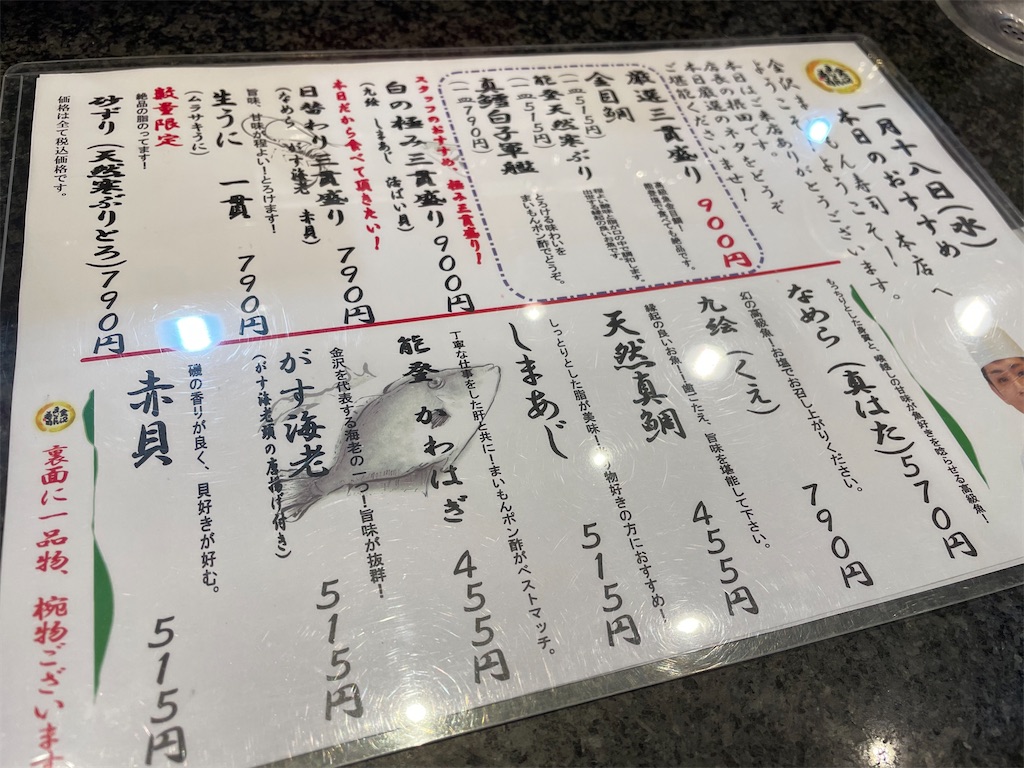 一月十八日(水)
本日のおすすめ
金沢まいもん寿司 本店へ
ようこそ!ようこそ!
ご来店ありがとうございます。
本日は摂田です。
店長厳選のネタをどうぞ
ご堪能くださいませ!
厳選三貫盛り 900円
金目鯛
(一皿515円)
能登天然寒ぶり
(一皿515円)
真鱈白子軍艦
(一皿790円)
とろける味わいを
まいもんポン酢でどうぞ。
スタッフのおすすめ、極み三貫盛り!
白の極み三貫盛り 900円
(九絵 しまあじ 活ばい貝)
本日だから食べて頂きたい!
日替わり三貫盛り 790円
(なめら がす海老 赤貝)
旨味、甘味が程よい!とろけます!
生うに 一貫 790円
(ムラサキうに)
数量限定
絶品の脂のってます!
砂ずり(天然寒ぶりとろ)790円
価格は全て税込価格です。
もっちりとした身質と、繊細しの甘味が魚好きを唸らせる高級魚!
なめら(真はた)570円
幻の高級魚!お塩でお召し上がりください。
九絵(くえ) 790円
縁起の良いお魚!歯ごたえ、旨味を堪能して下さい。
天然真鯛 455円
しっとりとした脂が美味!光り物好きの方におすすめ!
しまあじ 515円
丁寧な仕事をした肝と共に!まいもんポン酢がベストマッチ。
能登かわはぎ 455円
金沢を代表する海老の一つ!旨味が抜群!
がす海老 515円
(がす海老頭の唐揚げ付き)
磯の香りが良く、貝好きが好む。
赤貝 515円
裏面に一品物、椀物ございます